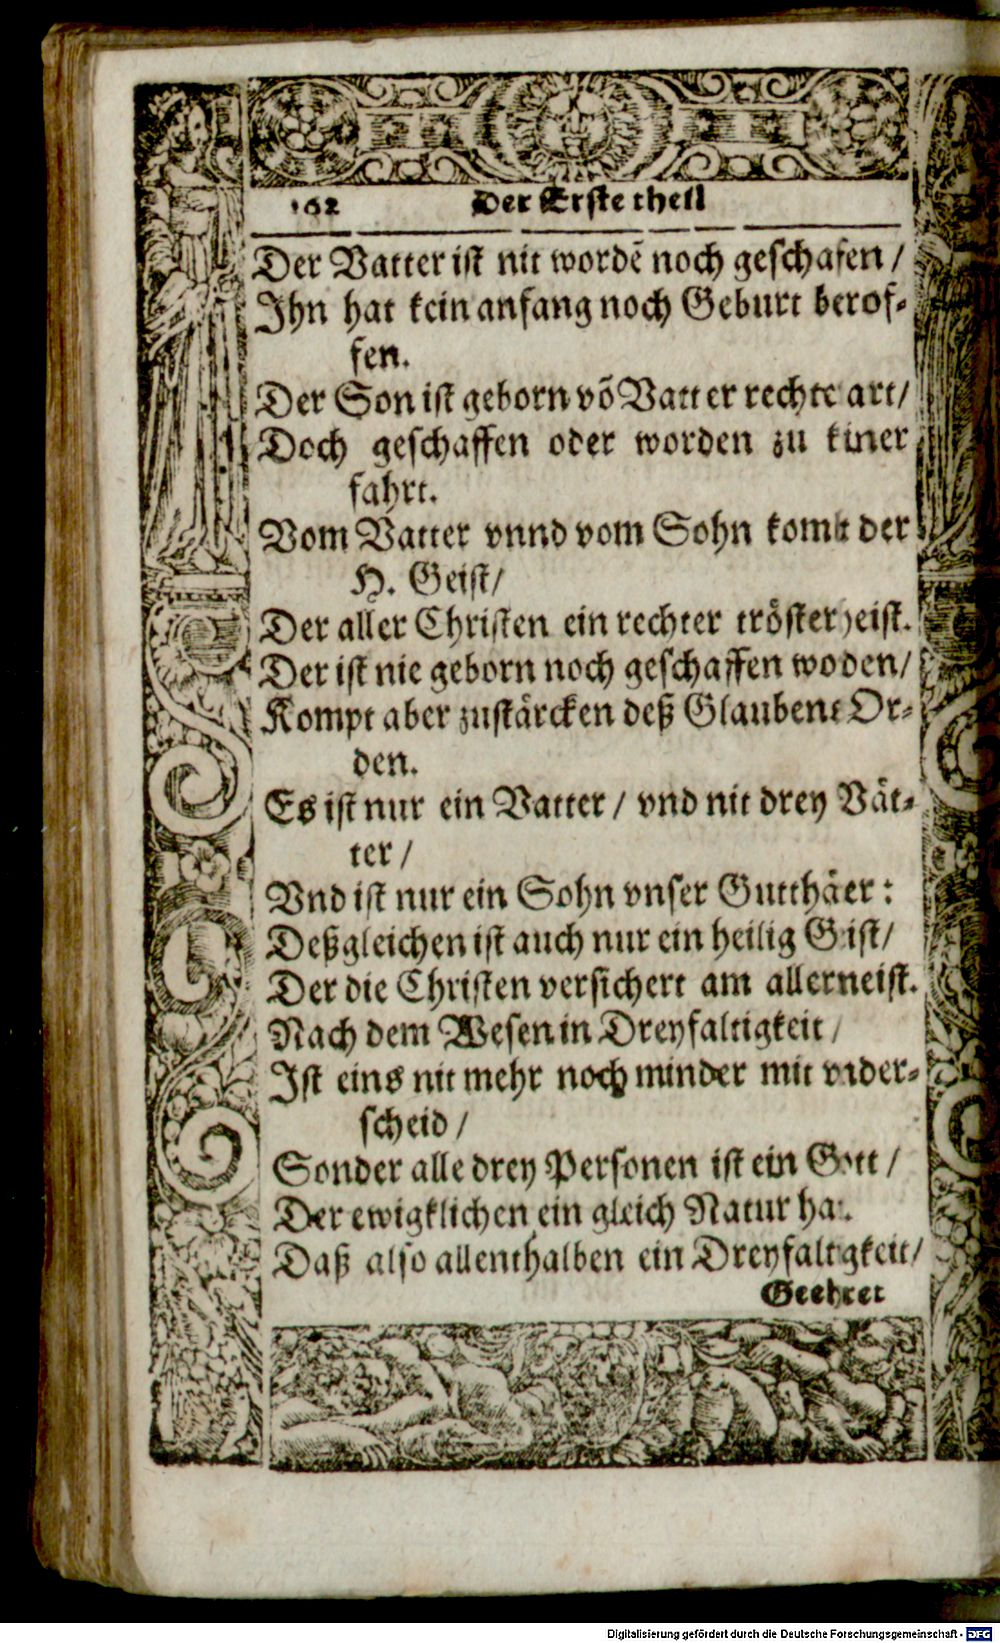 162 Der Erste theil
Der Vatter ist nit wordẽ noch geschafen /
Ihn hat kein anfang noch Geburt berof-
fen.
Der Son ist geborn võ Vatter rechte art /
Doch geschaffen oder worden zu kiner
fahrt.
Vom Vatter vnnd vom Sohn komt der
H. Geist /
Der aller Christen ein rechter tröster heist.
Der ist nie geborn noch geschaffen woden /
Kompt aber zustärcken deß Glaubens Or-
den.
Es ist nur ein Vatter / vnd nit drey Vät-
ter /
Vnd ist nur ein Sohn vnser Gutthäer :
Deßgleichen ist auch nur ein heilig Gist /
Der die Christen versichert am allerneist.
Nach dem Wesen in Dreyfaltigkeit /
Ist eins nit mehr noch minder mit vnder-
scheid /
Sonder alle drey Personen ist ein Gott /
Der ewigklichen ein gleich Natur hat.
Daß also allenthalben ein Dreyfaltigkeit /
Geehret
Digitalisierung gefördert durch die Deutsche Forschungsgemeinschaft - DFG